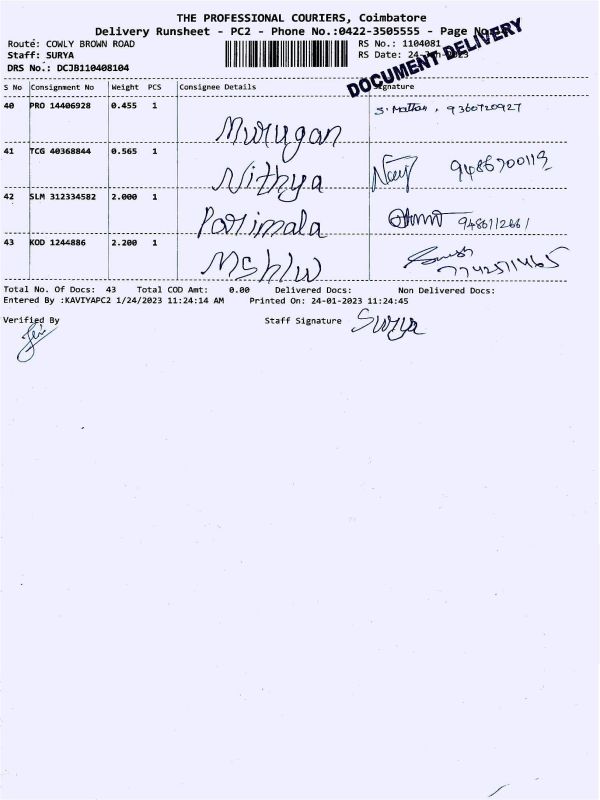 THE PROFESSIONAL COURIERS, Coimbatore
Delivery Runsheet - PC2 - Phone No.:0422-3505555 - Page
DOCUMENT DELIVERY
Route: COWLY BROWN ROAD RS No.: 1104081
Staff: SURYA RS Date: 24-Jan-2023
DRS No.: DCJB110408104
S No Consignment No Weight PCS Consignee Details Signature
40 PRO 14406928 0.455 1 Murugan 9360720927
41 TCG 40368844 0.565 1 Nithya 9486700119
42 SLM 312334582 2.000 1 Parimala 9486112661
43 KOD 1244886 2.200 1
Total No. Of Docs: 43 Total COD Amt: 0.00 Delivered Docs: Non Delivered Docs:
Entered By :KAVIYAPC2 1/24/2023 11:24:14 AM Printed On: 24-01-2023 11:24:45
Verified By Staff Signature Surya